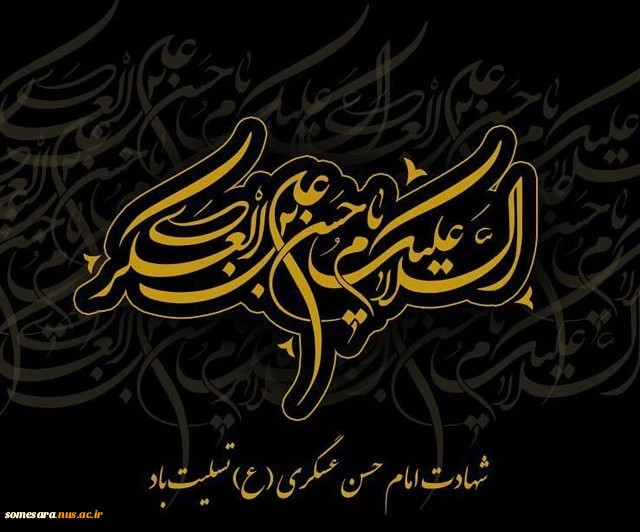 السلام علیک یا حسن بن علی العسکری
شهادت امام حسن عسگری (ع) تسلیت باد
somesara.nus.ac.ir